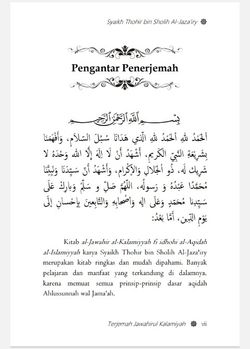 Syaikh Thohir bin Sholih Al-Jaza'iry
Pengantar Penerjemah
بِسْمِ اللَّهِ الرَّحْمَٰنِ الرَّحِيمِ
الْحَمْدُ لِلَّهِ الْحَمْدُ لِلَّهِ الَّذِي هَدَانَا سُبُلَ السَّلَامِ، وَأَفْهَمَنَا
بِشَرِيْعَةِ النَّبِيِّ الْكَرِيْمِ، أَشْهَدُ أَنْ لَا إِلَهَ إِلَّا اللهُ وَحْدَهُ لَا
شَرِيْكَ لَهُ، ذُو الْجَلَالِ وَالْإِكْرَامِ، وَأَشْهَدُ أَنَّ سَيِّدَنَا وَنَبِيَّنَا
مُحَمَّدًا عَبْدُهُ وَ رَسُوْلُهُ، اللَّهُمَّ صَلِّ وَ سَلِّمْ وَبَارِكْ عَلَى
سَيِّدِنَا مُحَمَّدٍ وَعَلَى اٰلِهِ وَأَصْحَابِهِ وَالتَّابِعِيْنَ بِإِحْسَانٍ إِلَى
يَوْمِ الدِّيْنِ، أَمَّا بَعْدُ:
Kitab al-Jawahir al-Kalamiyyah fi idhohi al-Aqidah
al-Islamiyyah karya Syaikh Thohir bin Sholih Al-Jaza'iry
merupakan kitab ringkas dan mudah dipahami. Banyak
pelajaran dan manfaat yang terkandung di dalamnya,
karena memuat semua prinsip-prinsip dasar aqidah
Ahlussunnah wal Jama'ah.
Terjemah Jawahirul Kalamiyah
vii